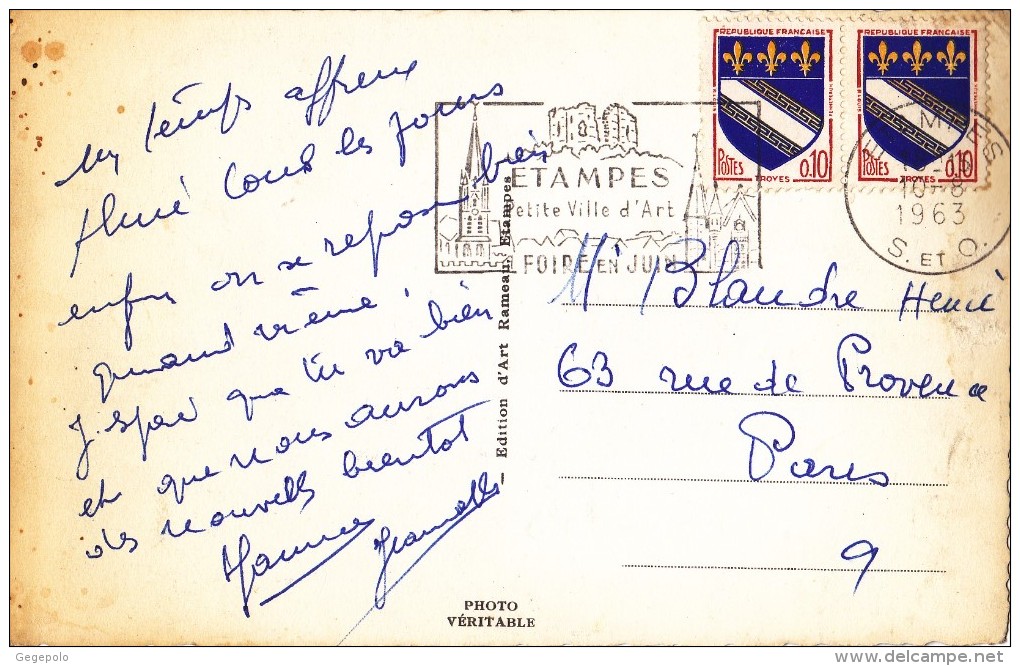 un temps affreux
tous les jours
enfin on se repose bien
quand même !
J. espère que tu va bien
et que nous aurons
des nouvells bientot
REPUBLIQUE FRANÇAISE
POSTES
0.10
TROYES
REPUBLIQUE FRANÇAISE
POSTES
0.10
TROYES
ETAMPES
Petite Ville d'Art
FOIRE EN JUIN
10-8
1963
S. ET O.
Edition d'Art Rameau, Etampes
Mr Blandre Henri
63 rue de Provence
Paris
9
PHOTO
VÉRITABLE
Gegepolo
www.delcampe.net